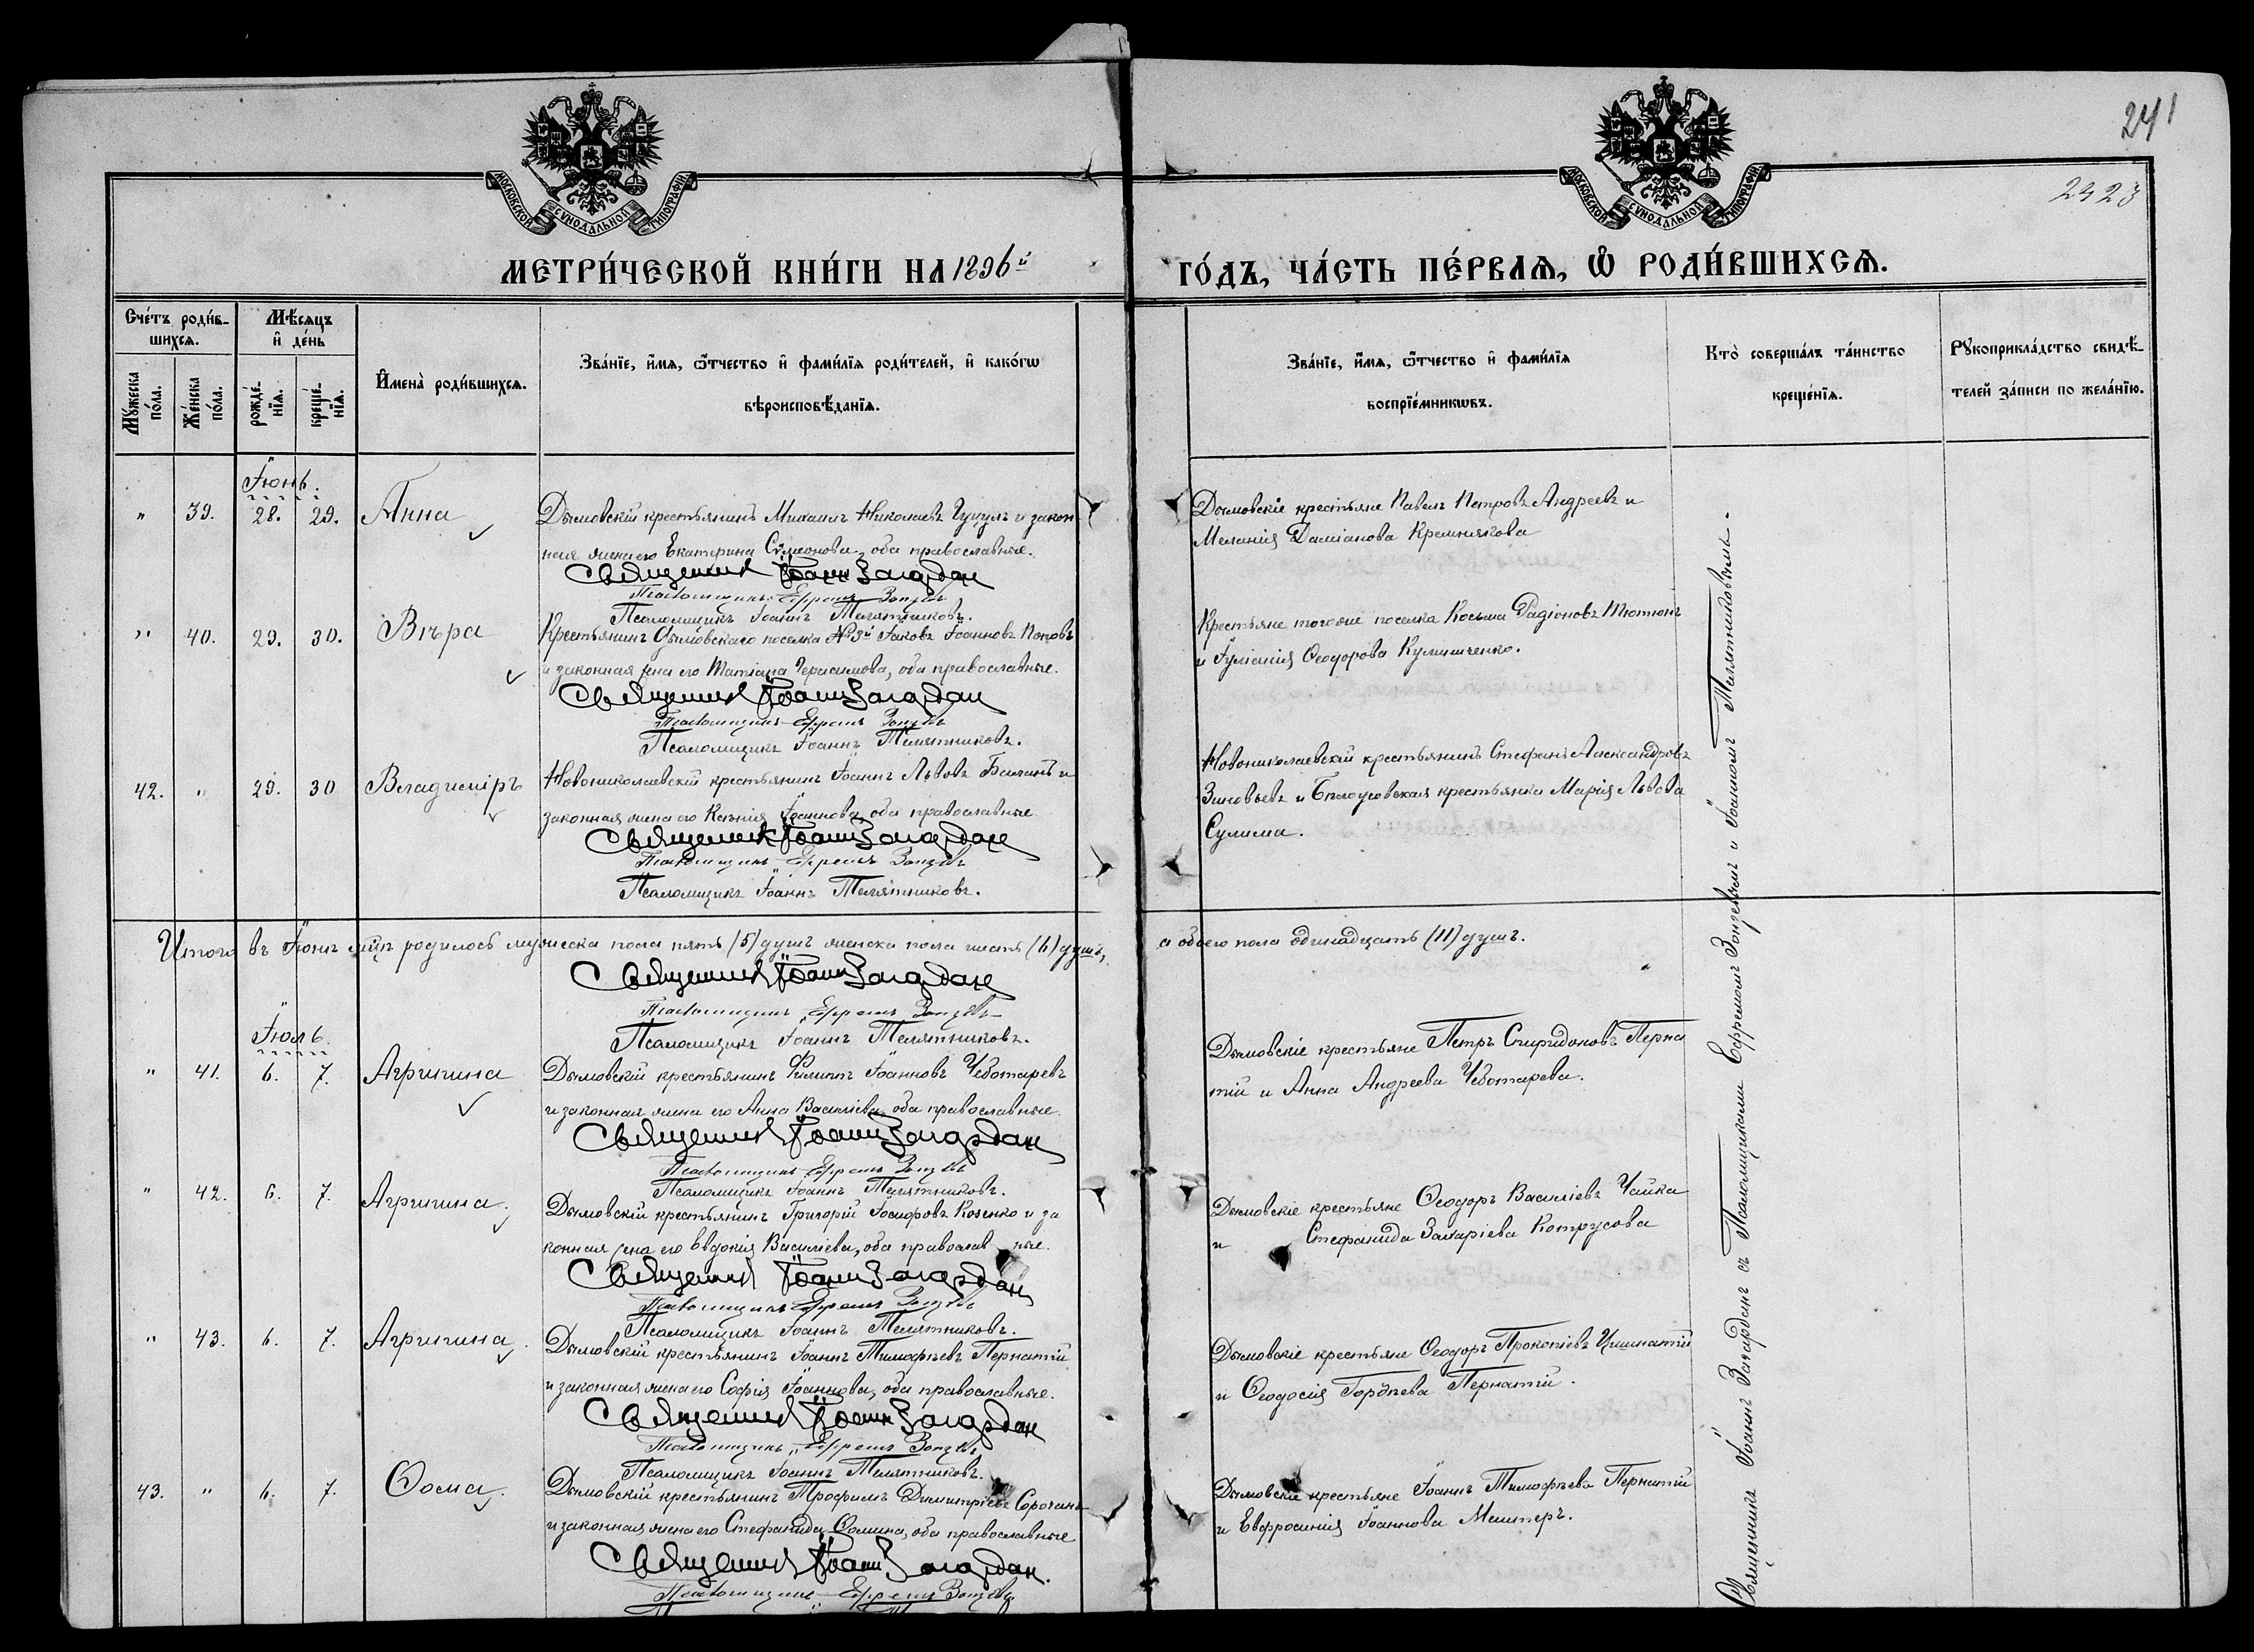 241
2423
МОСКОВСКОЙ СѴНОДАЛЬНОЙ ТИПОГРАФІИ
МОСКОВСКОЙ СѴНОДАЛЬНОЙ ТИПОГРАФІИ
МЕТРИ́ЧЕСКОЙ КНИ́ГИ НА 1896й
ГО́ДЪ, ЧА́СТЬ ПЕ́РВАѦ, Ѡ҆ РОДИ́ВШИХСѦ.
Сче́тъ роди́в-
шихсѧ.
Мѣ́сѧцъ
и҆ де́нь
Мꙋ́жеска по́ла.
Же́нска по́ла.
рожде́-нїѧ.
креще́-нїѧ.
И҆мена̀ роди́вшихсѧ.
Зва́нїе, и҆́мѧ, ѻ҆́тчество и҆ фами́лїѧ роди́телей, и҆ како́гѡ
вѣроисповѣ́данїѧ.
Зва́нїе, и҆́мѧ, ѻ҆́тчество и҆ фами́лїѧ
воспрїе́мникѡвъ.
Кто̀ соверша́лъ та́инство
креще́нїѧ.
Рꙋкоприкла́дство свидѣ́-
телей за́писи по жела́нїю.
Іюнь.
" 39. 28. 29. Анна
Дымовскій крестьянинъ Михаилъ Николаевъ Гуцулъ и закон
ная жена его Екатерина Сѵмеонова, оба православные.
Священникъ Іоаннъ Загардан
Псаломщикъ Ефремъ
Псаломщикъ Іоаннъ Телятниковъ.
Дымовскіе крестьяне Павелъ Петровъ Андреевъ и
Меланія Даміанова Кремнякова
" 40. 29. 30. Вѣра
Крестьянинъ Дымовскаго поселка №3й Іаковъ Іоанновъ Поповъ
и законная жена его Татіана Герасимова, оба православные.
Священникъ Іоаннъ Загардан
Псаломщикъ Ефремъ
Псаломщикъ Іоаннъ Телятниковъ.
Крестьяне тогоже поселка Косьма Радіоновъ Тютюнъ
и Іуліанія Ѳеодорова
42. " 29. 30 Владиміръ
Новониколаевскій крестьянинъ Іоаннъ Львовъ и
законная жена его Ксенія Іоаннова, оба православные
Священникъ Іоаннъ Загардан
Псаломщикъ Ефремъ
Псаломщикъ Іоаннъ Телятниковъ.
Новониколаевскій крестьянинъ Стефанъ Александровъ
Зиновьевъ и Бѣлоусовская крестьянка Марія Львова
Сулима.
Итого въ Іюнѣ м͠цѣ родилось мужеска пола пять (5) душъ женска пола шесть (6) душъ,
а обоего пола одинадцать (11) душъ.
Священникъ Іоаннъ Загардан
Псаломщикъ Ефремъ
Псаломщикъ Іоаннъ Телятниковъ.
Іюль.
" 41. 6. 7. Агрипина
Дымовскій крестьянинъ Филиппъ Іоанновъ Чеботаревъ
и законная жена его Анна Василіева, оба православные.
Священникъ Іоаннъ Загардан
Псаломщикъ Ефремъ
Псаломщикъ Іоаннъ Телятниковъ.
Дымовскіе крестьяне Петръ Спиридоновъ Перна
тій и Анна Андреева Чеботарева.
" 42. 6. 7. Агрипина
Дымовскій крестьянинъ Григорій Іосифовъ Козенко и за
конная жена его Евдокія Василіева, оба православ ные.
Священникъ Іоаннъ Загардан
Псаломщикъ Ефремъ
Псаломщикъ Іоаннъ Телятниковъ.
Дымовскіе крестьяне Ѳеодоръ Василіевъ Чайка
и Стефанида Захаріева Котрусова
" 43. 6. 7. Агрипина.
Дымовскій крестьянинъ Іоаннъ Тимофѣевъ Пернатій
и законная жена его Софія Іоаннова, оба православные.
Священникъ Іоаннъ Загардан
Псаломщикъ Ефремъ
Псаломщикъ Іоаннъ Телятниковъ.
Дымовскіе крестьяне Ѳеодоръ Прокопіевъ
и Ѳеодосія Гордѣева Пернатій.
43. " 6. 7. Ѳома.
Дымовскій крестьянинъ Трофимъ Димитріевъ Сорочанъ
и законная жена его Стефанида Ѳомина, оба православные
Священникъ Іоаннъ Загардан.
Псаломщикъ Ефремъ
Дымовскіе крестьяне Іоаннъ Тимофѣевъ Пернатій
и Евфросинія Іоаннова
Священникъ Іоаннъ Загарданъ съ Псаломщиками Ефремомъ и Іоанномъ Телятниковымъ.